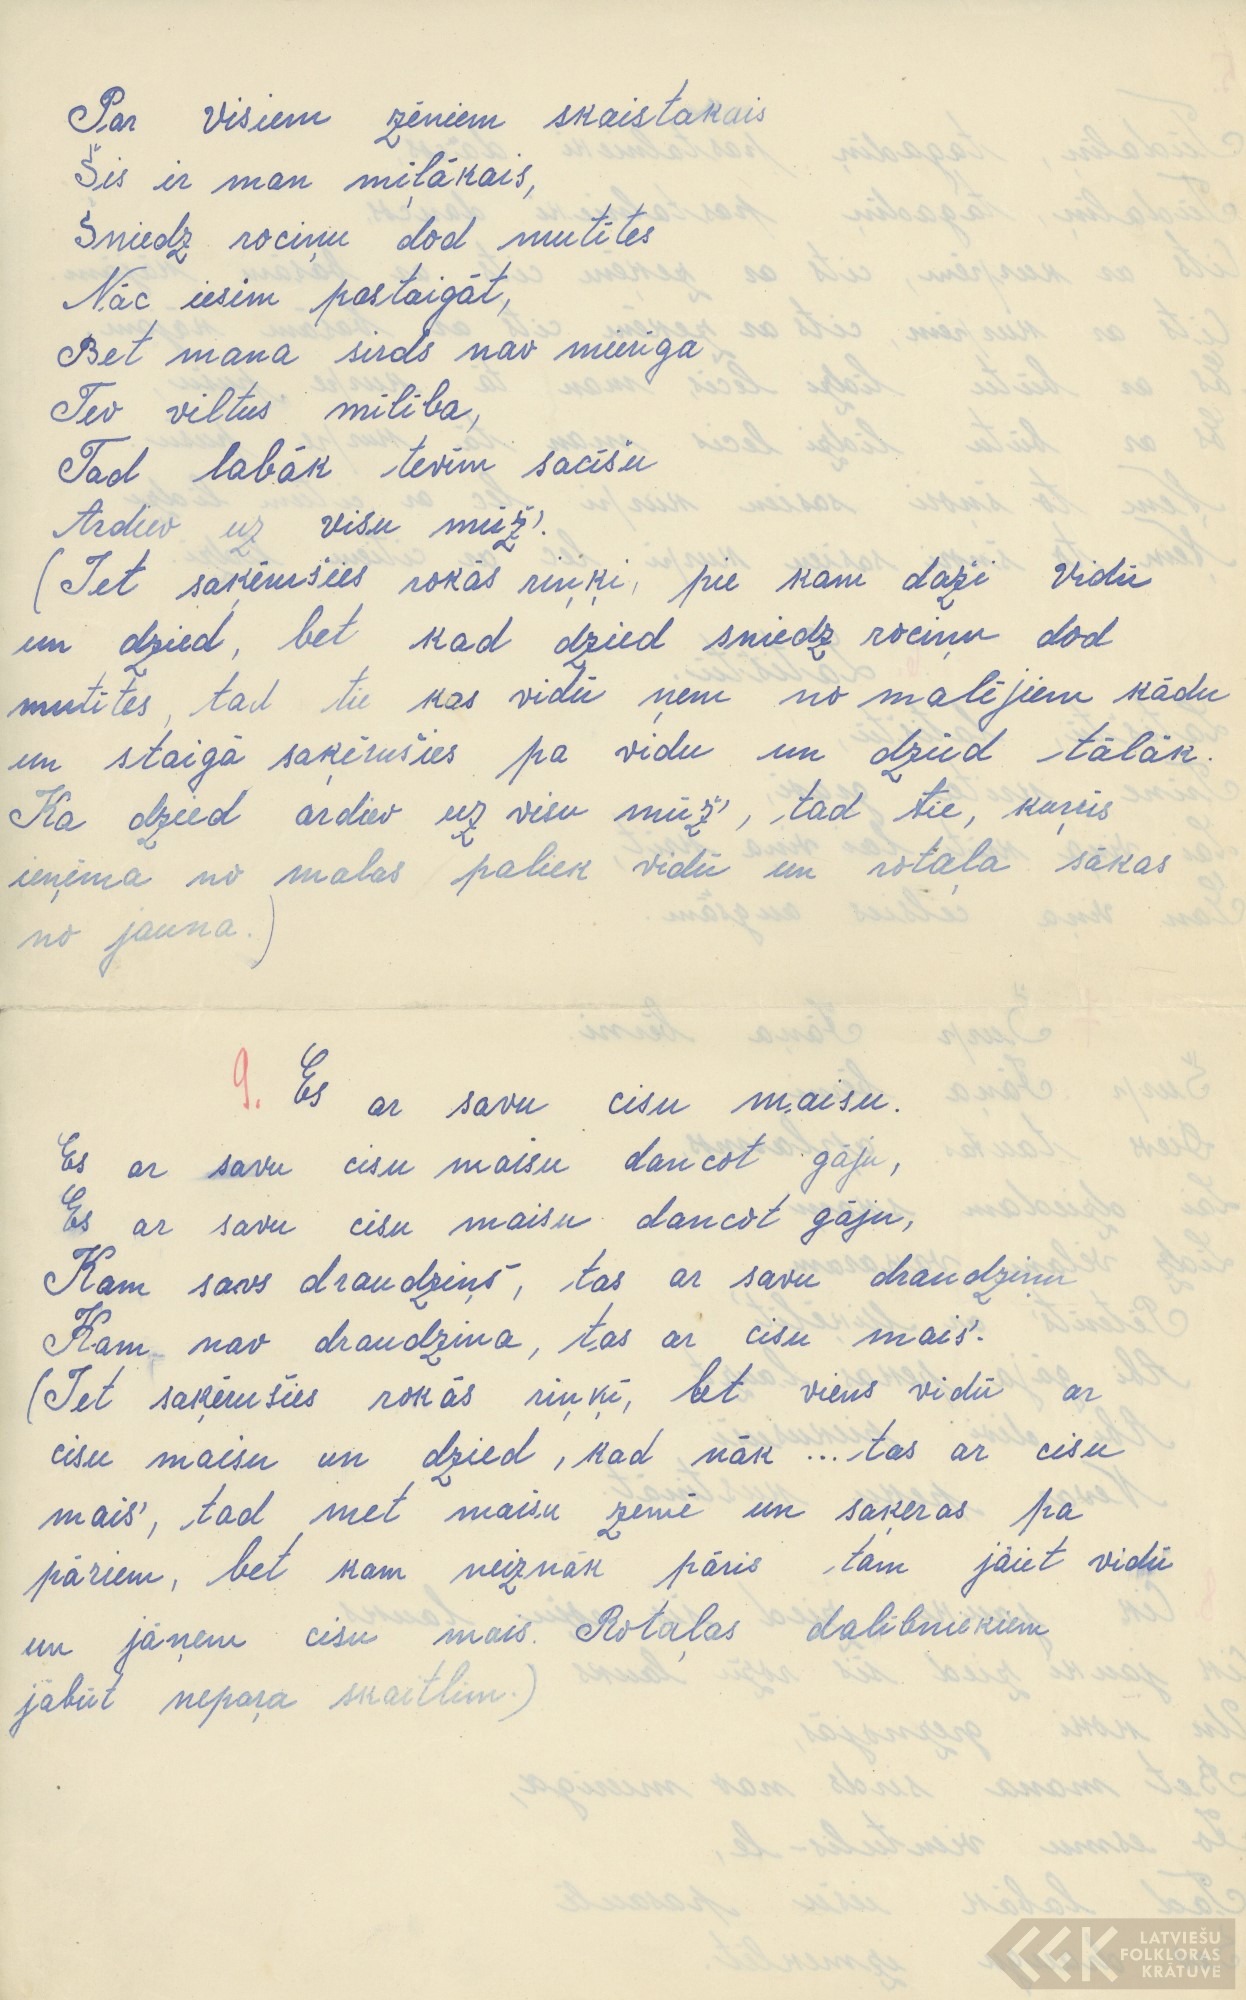 Par visiem zēniem skaistakais
Šis ir man miļākais,
Sniedz rociņu dod mutītes
Nāc iesim pastaigāt,
Bet mana sirds nav mierīga
Tev viltus milība,
Tad labāk tevim sacīšu
Ardiev uz visu mūž'.
(Iet saķērušies rokās riņķī, pie kam daži vidū
un dzied, bet kad dzied sniedz rociņu dod
mutītes, tad tie kas vidū ņem no malējiem kādu
un staigā saķērušies pa vidu un dzied tālāk.
Ka dzied ardiev uz visu mūž', tad tie, kuŗus
ieņēma no malas paliek vidū un rotaļa sākas
no jauna.)
9. Es ar savu cisu maisu.
Es ar savu cisu maisu dancot gāju,
Es ar savu cisu maisu dancot gāju,
Kam savs draudziņš, tas ar savu draudziņu
Kam nav draudziņa, tas ar cisu mais'.
(Iet saķērušies rokās riņķī, bet viens vidū ar
cisu maisu un dzied, kad nāk ... tas ar cisu
mais', tad met maisu zemē un saķeras pa
pāriem, bet kam neiznāk pāris tam jāiet vidū
un jāņem cisu mais. Rotaļas dalībniekiem
jābūt nepaŗa skaitlim.)
LATVIEŠU
FOLKLORAS
KRĀTUVE